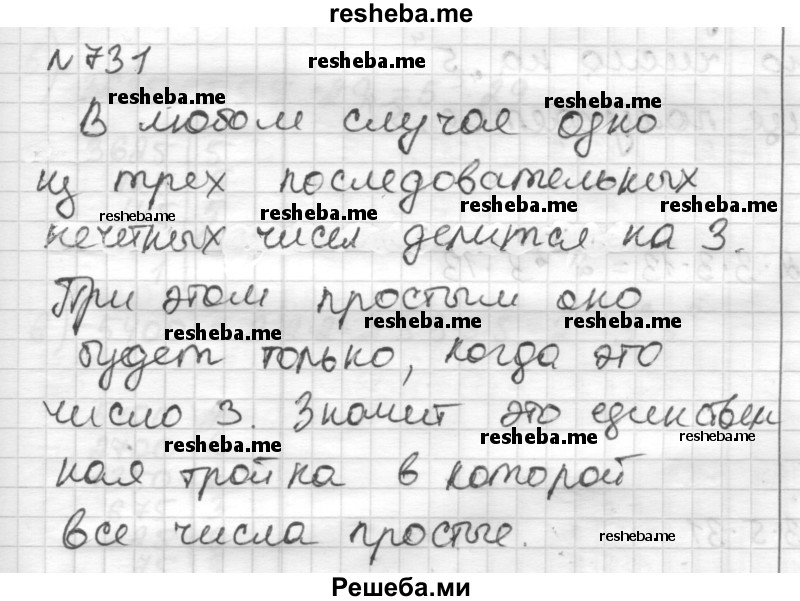 resheba.me
№ 731
resheba.me
resheba.me
resheba.me
В любом случае одно
из трех последовательных
resheba.me
resheba.me
resheba.me
resheba.me
нечетных чисел делится на 3.
При этом простым оно
resheba.me
resheba.me
resheba.me
будет только, когда это
число 3. Значит это единствен
resheba.me
resheba.me
resheba.me
ная тройка в которой
все числа простые.
resheba.me
Решеба.ми